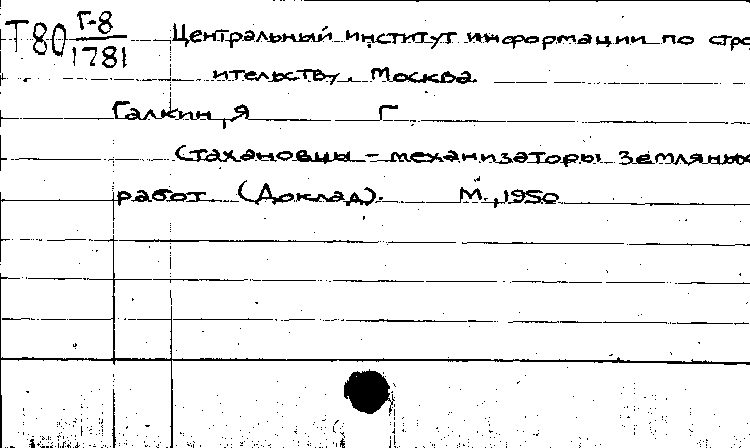 Т80 Г-8
1781
Центральный институт информации по стро
ительству. Москва.
Галкин, Я Г
Стахановцы - механизаторы земляных
работ. (Доклад). М., 1950